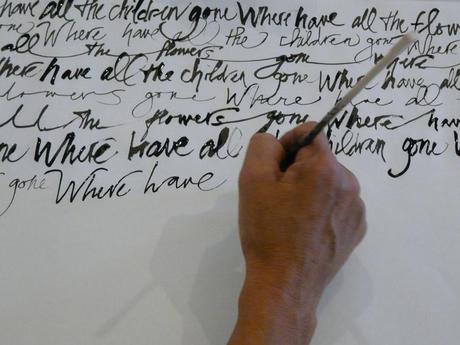 have all the children gone Where have all the flow
one Where have all the children gone Where
all the flowers gone Where
here have all the children gone Where have all
lowers gone Where have all
ll the flowers gone Where hav
ne Where have all children gone W
s gone Where have